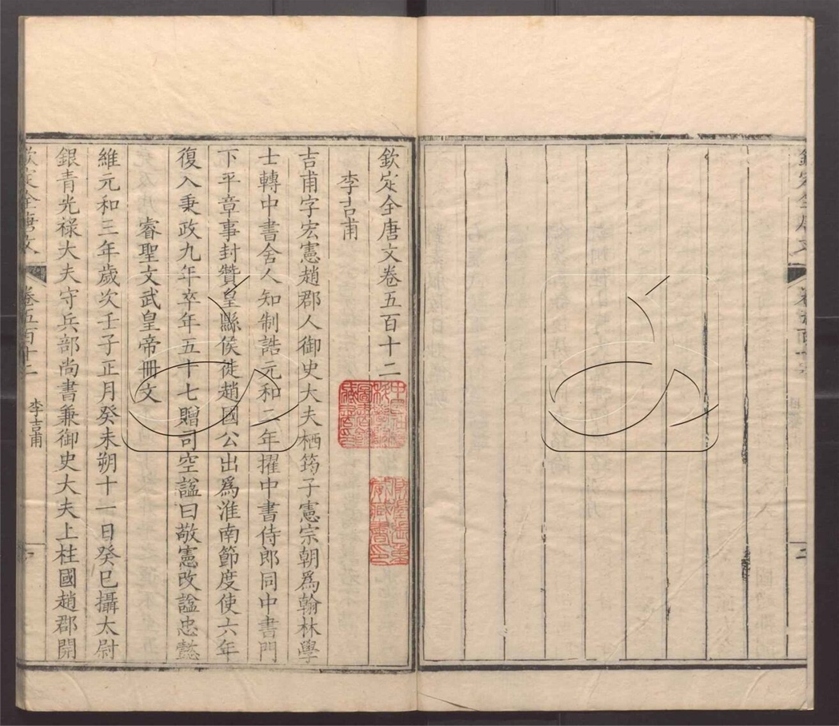 欽定全唐文卷五百十二
李吉甫
吉甫字宏憲趙郡人御史大夫栖筠子憲宗朝爲翰林學
士轉中書舍人知制誥元和二年擢中書侍郎同中書門
下平章事封贊皇縣侯徙趙國公出爲淮南節度使六年
復入秉政九年卒年五十七贈司空謚曰敬憲改謚忠懿
睿聖文武皇帝冊文
維元和三年歲次壬子正月癸未朔十一日癸巳攝太尉
銀青光祿大夫守兵部尚書兼御史大夫上柱國趙郡開
欽定全唐文 卷五百十二 李吉甫